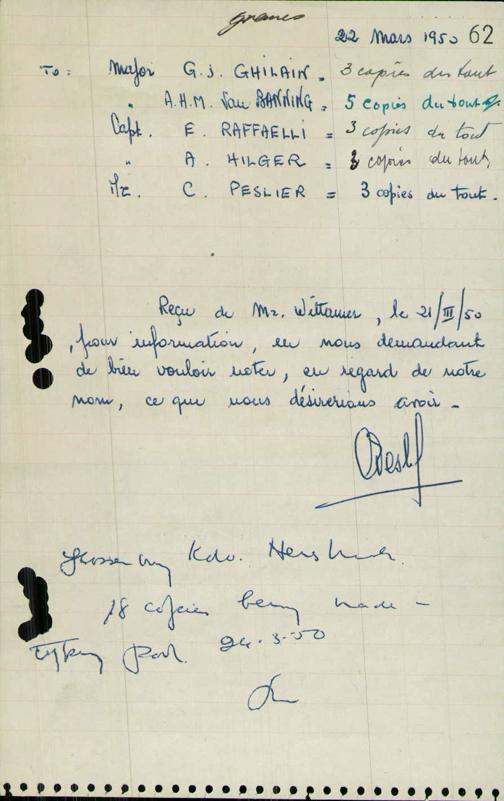 graves
22 Mars 1950 62
To : Major G. J. GHILAIN = 3 copies du tout
" A.H.M. Van BANNING = 5 copies du tout
Capt. E. RAFFAELLI = 3 copies du tout
" A. HILGER = 3 copies du tout
Mr. C. PESLIER = 3 copies du tout.
Reçu de Mr. Wittamer, le 21/III/50
, pour information, en nous demandant
de bien vouloir noter, en regard de notre
nom, ce que nous désirerions avoir.
Kdo.
18 copies being made -
Typing Pool. 24.3.50